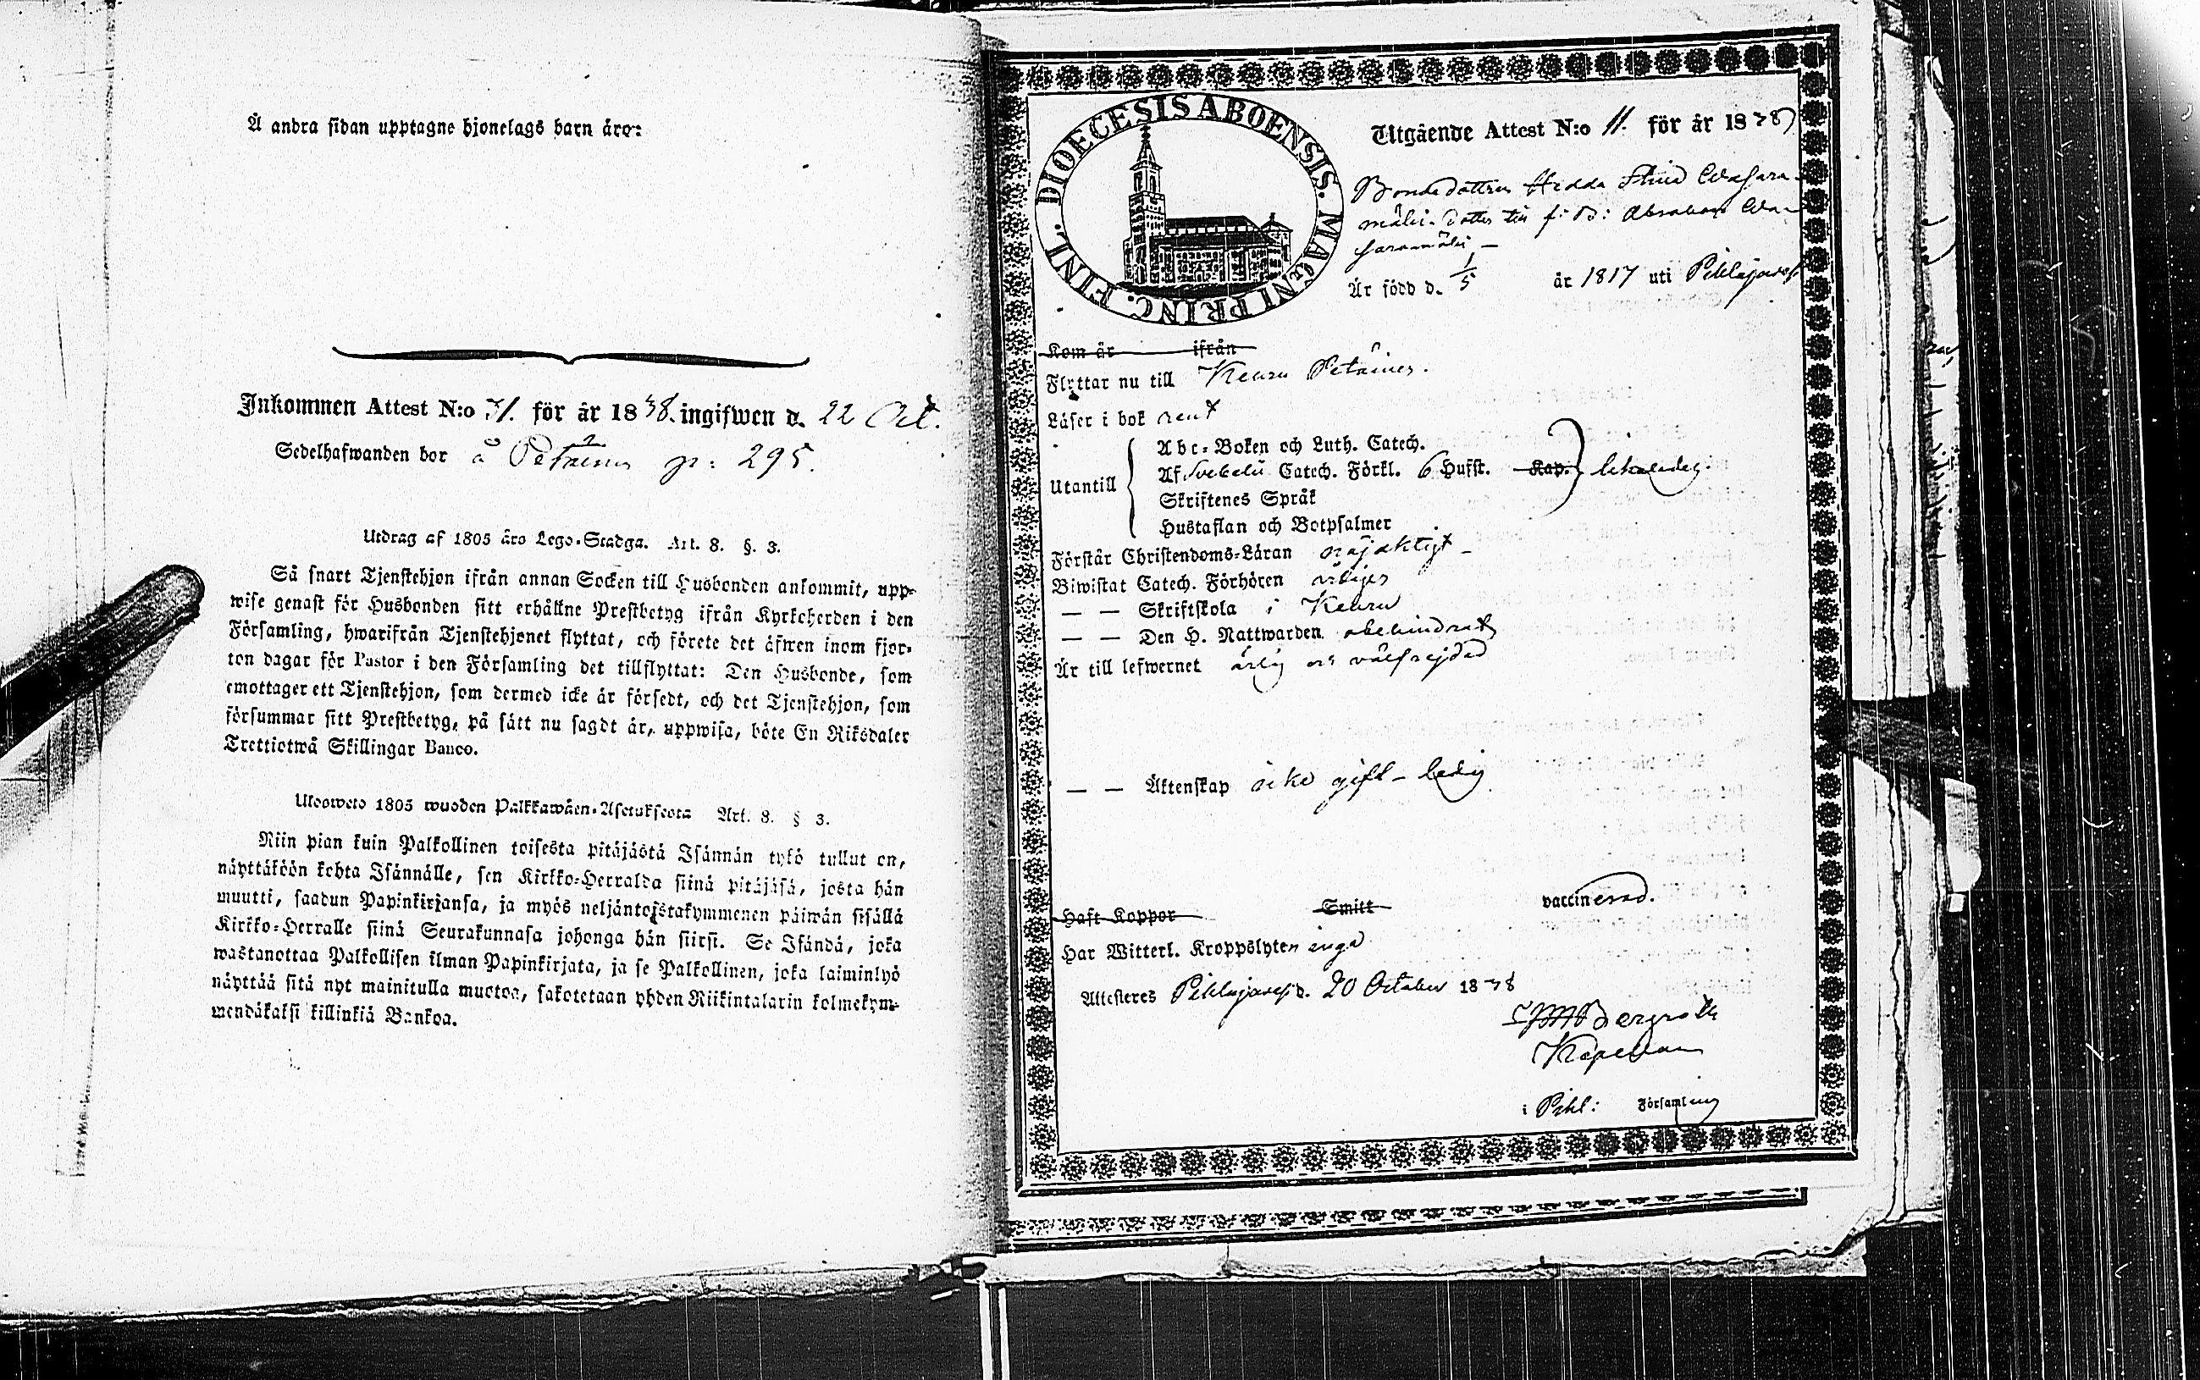 Å andra sidan upptagne hjonelags barn äro:
Inkommen Attest N:o 31. för år 1838. ingifwen d. 22 Oct.
Sedelhafwanden bor å Petäinen p: 295.
Utdrag af 1805 års Lego-Stadga. Art. 8. §. 3.
Så snart Tjenstehjon ifrån annan Socken till Husbonden ankommit, upp-
wise genast för Husbonden sitt erhållne Prestbetyg ifrån Kyrkoherden i den
Församling, hwarifrån Tjenstehjonet flyttat, och förete det äfwen inom fjor-
ton dagar för Pastor i den Församling det tillflyttat: Den Husbonde, som
emottager ett Tjenstehjon, som dermed icke är försedt, och det Tjenstehjon, som
försummar sitt Prestbetyg, på sätt nu sagdt är, uppwisa, böte En Riksdaler
Trettiotwå Skillingar Banco.
Ulosweto 1805 wuoden Palkkawäen-Asetuksesta Art. 8. § 3.
Niin pian kuin Palkollinen toisesta pitäjästä Isännän tykö tullut on,
näyttäköön kohta Isännälle, sen Kirkko-Herralda siinä pitäjäsä, josta hän
muutti, saadun Papinkirjansa, ja myös neljäntoistakymmenen päiwän sisällä
Kirkko-Herralle siinä Seurakunnasa johonga hän siirsi. Se Isändä, joka
wastanottaa Palkollisen ilman Papinkirjata, ja se Palkollinen, joka laiminlyö
näyttää sitä nyt mainitulla muotoa, sakotetaan yhden Riikintalarin kolmekym-
mendäkaksi killinkiä Bankoa.
DIOECESIS ABOENSIS. MAGNI PRINC. FINL.
Utgående Attest N:o 11. för år 1838
Bondedottren Hedda Stina Wasara-
mäki. dotter till f: B: Abraham Wa-
saramäki —
Är född d. 1/5 år 1817 uti Pihlajavesi
Kom år ifrån
Flyttar nu till Keuru Petäinen.
Läser i bok rent
Utantill
Abc-Boken och Luth. Catech.
Af Svebelii Catech. Förkl. 6 Hufst. Kap.
Skriftenes Språk
Hustaflan och Botpsalmer
Förstår Christendoms-Läran nöjaktigt —
Biwistat Catech. Förhören årligen
— — Skriftskola i Keuru
— — Den H. Nattwarden obehindrat
Är till lefwernet ärlig och välfrejdad
— — Äktenskap icke gift - ledig
Haft Koppor Smitt vaccinerad.
Har Witterl. Kroppslyten inga
Attesteras Pihlajavesi d. 20 October 1838
Bergroth
Kapellan
i Pihl: Församling